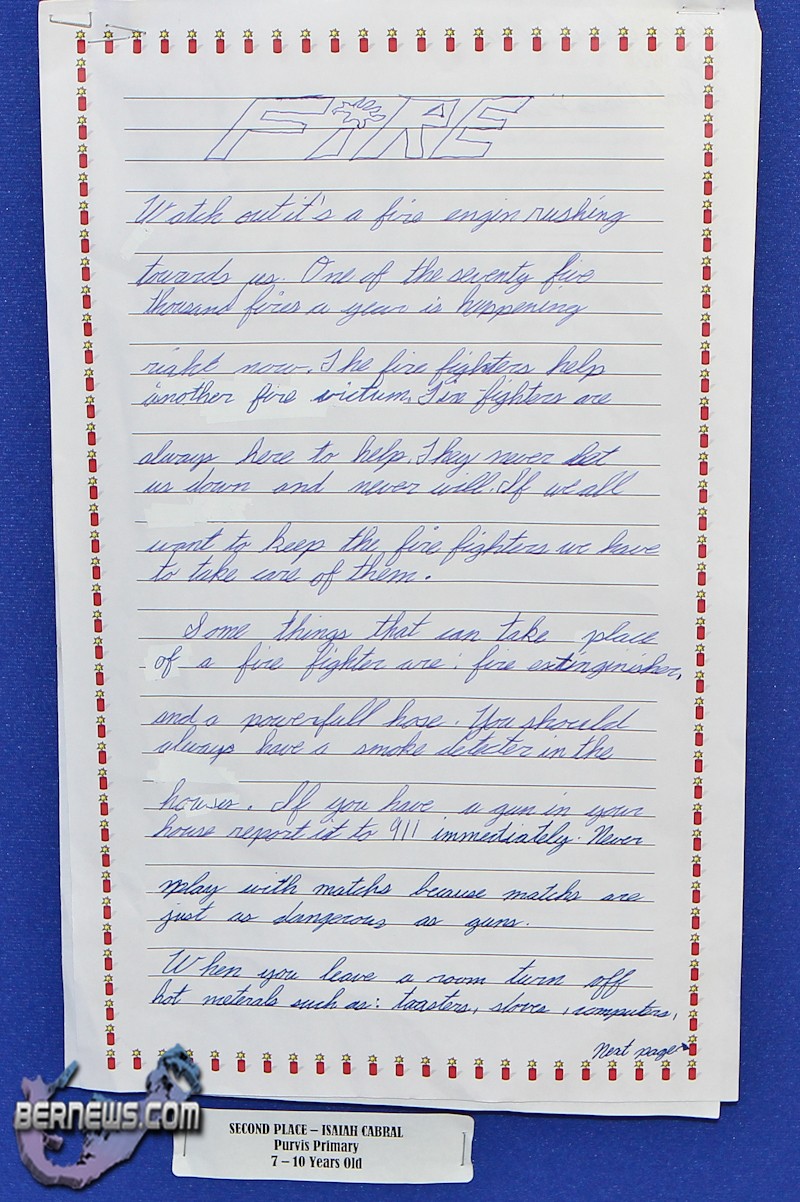 FIRE
Watch out it's a fire engin rushing
towards us. One of the seventy five
thousand fires a year is happening
right now. The fire fighters help
another fire victum. Fire fighters are
always here to help. They never let
us down and never will. If we all
want to keep the fire fighters we have
to take care of them.
Some things that can take place
of a fire fighter are: fire extinginisher,
and a powerfull hose. You should
always have a smoke detecter in the
houses. If you have a gun in your
house report it to 911 immediately. Never
play with matchs because matchs are
just as dangerous as guns.
When you leave a room turn off
hot meterals such as: toasters, stoves, computers,
Next page
BERNEWS.COM
SECOND PLACE – ISAIAH CABRAL
Purvis Primary
7 – 10 Years Old